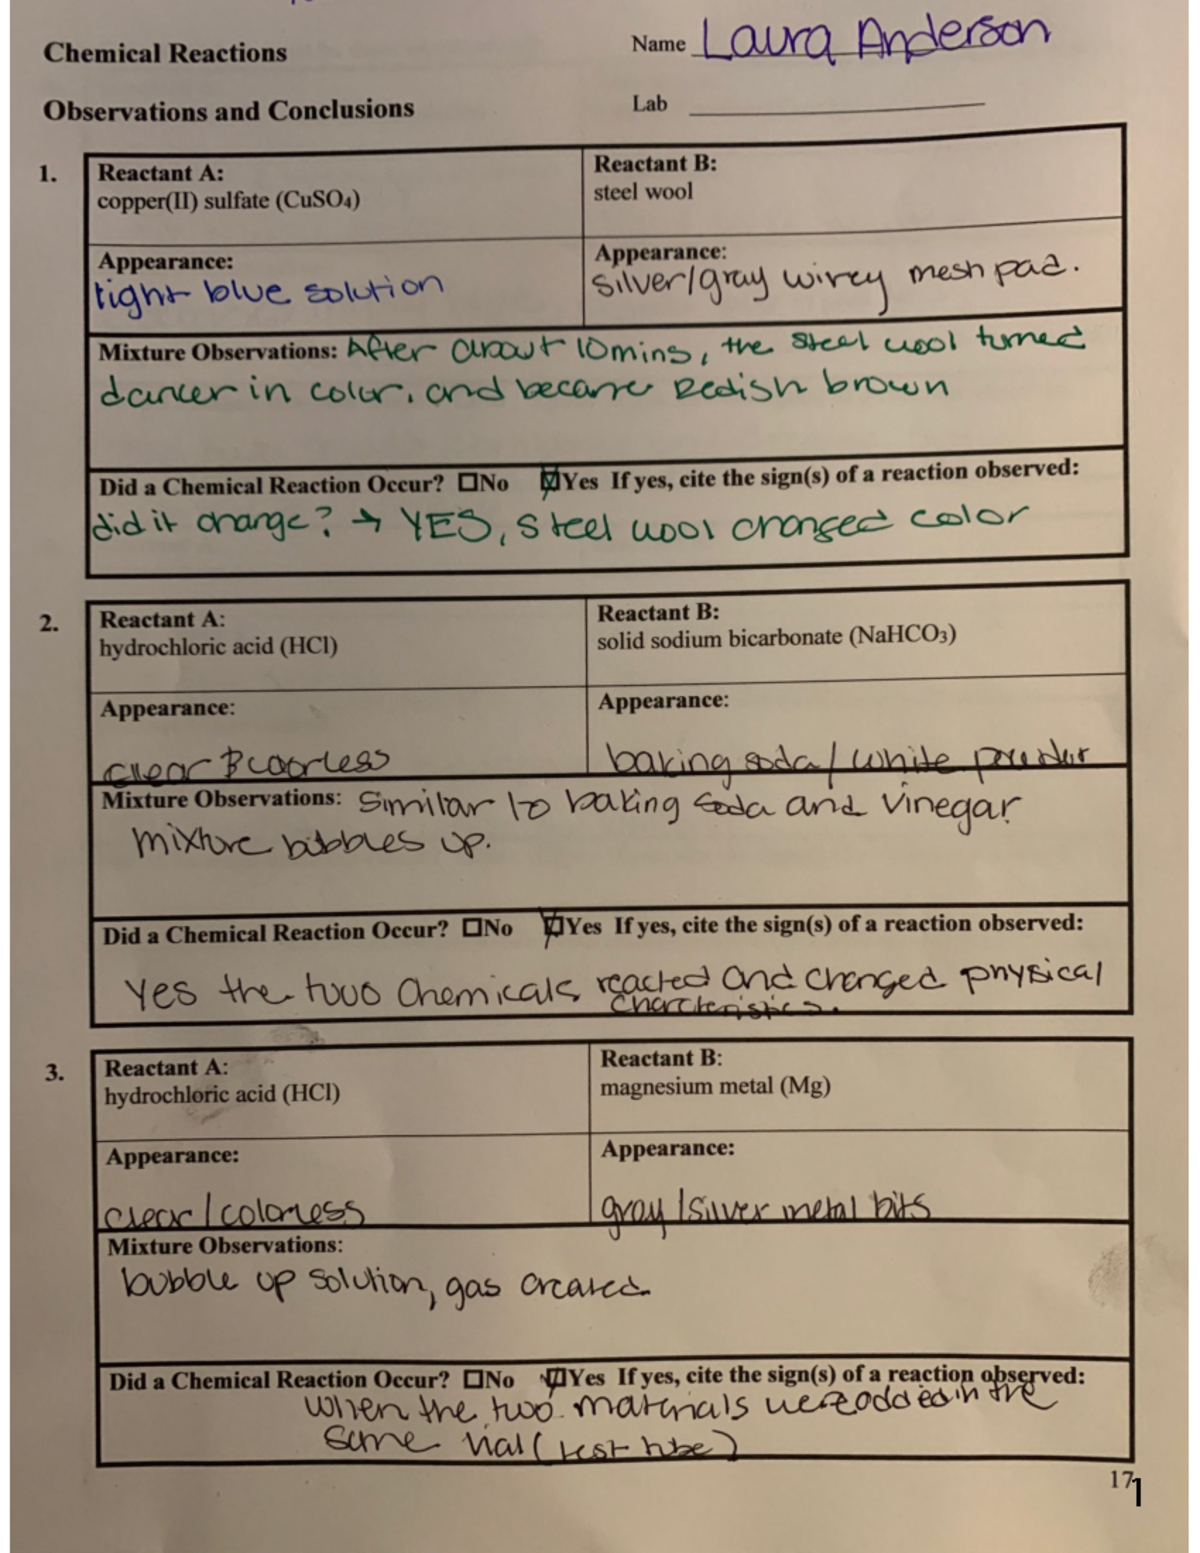 Chemical Reactions
Name Laura Anderson
Observations and Conclusions
Lab
1.
Reactant A:
copper(II) sulfate (CuSO4)
Reactant B:
steel wool
Appearance:
light blue solution
Appearance:
silver/gray wirey mesh pad.
Mixture Observations: After about 10mins, the steel wool turned
darker in color, and became Redish brown
Did a Chemical Reaction Occur? ☐No ☑Yes If yes, cite the sign(s) of a reaction observed:
did it change? → YES, steel wool changed color
2.
Reactant A:
hydrochloric acid (HCl)
Reactant B:
solid sodium bicarbonate (NaHCO3)
Appearance:
clear & coorless
Appearance:
baking soda / white powder
Mixture Observations: Similar to baking soda and vinegar
mixture bubbles up.
Did a Chemical Reaction Occur? ☐No ☑Yes If yes, cite the sign(s) of a reaction observed:
Yes the two Chemicals reacted and changed physical
Charcteristics.
3.
Reactant A:
hydrochloric acid (HCl)
Reactant B:
magnesium metal (Mg)
Appearance:
clear / colorless
Appearance:
gray / silver metal bits
Mixture Observations:
bubble up solution, gas created
Did a Chemical Reaction Occur? ☐No ☑Yes If yes, cite the sign(s) of a reaction observed:
When the two materials were added in the
same vial (test tube)
17
1